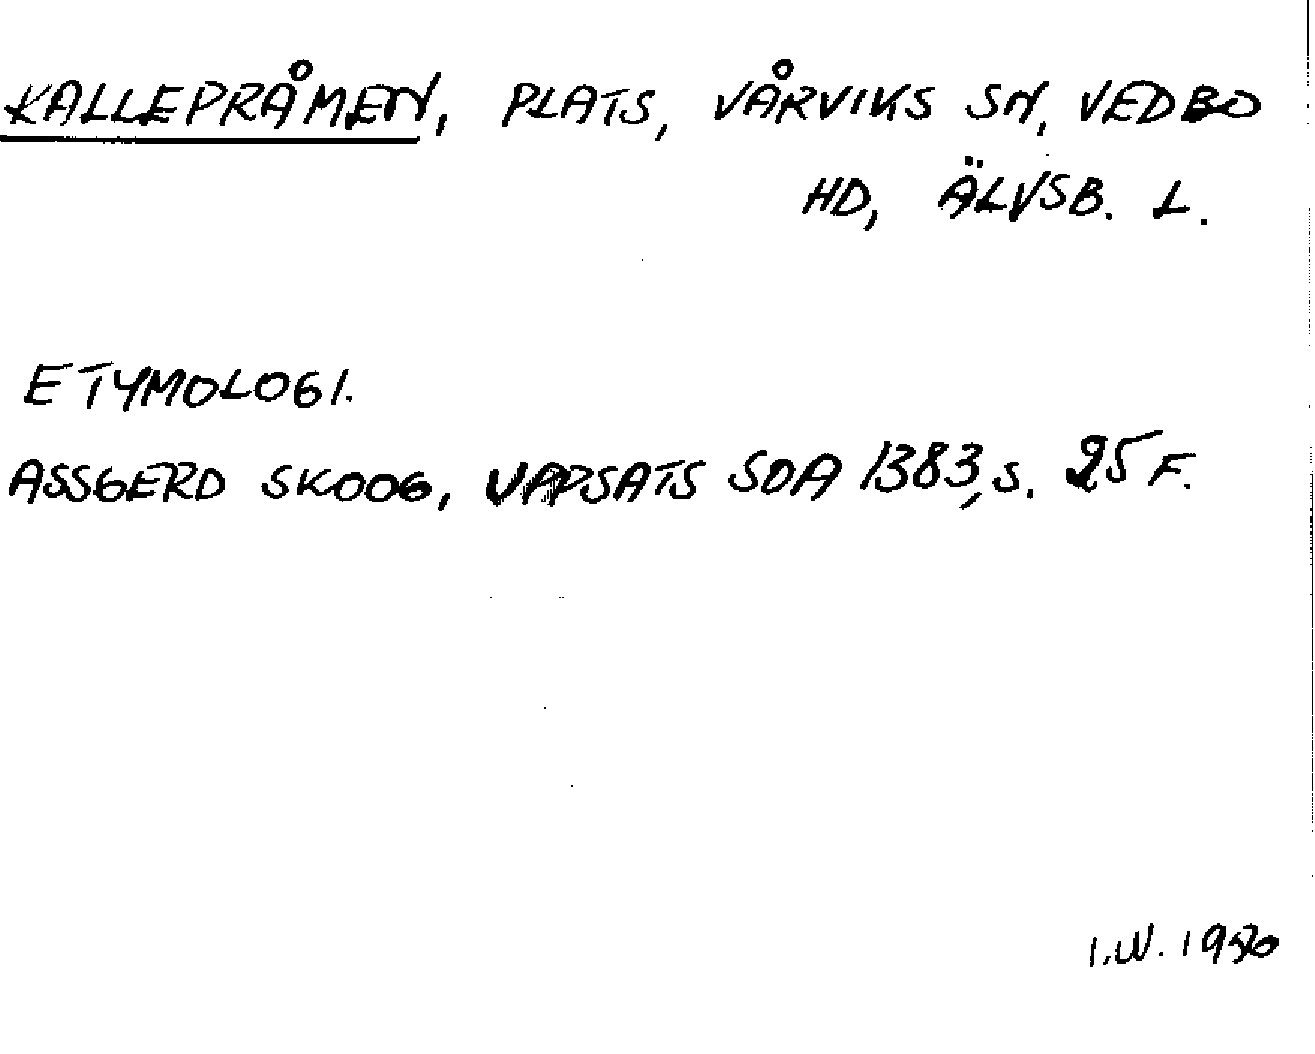 KALLEPRÅMEN, PLATS, VÅRVIKS SN, VEDBO
HD, ÄLVSB. L.
ETYMOLOGI.
ASSGERD SKOOG, UPPSATS SOA 1383, S. 25 F.
I.W.